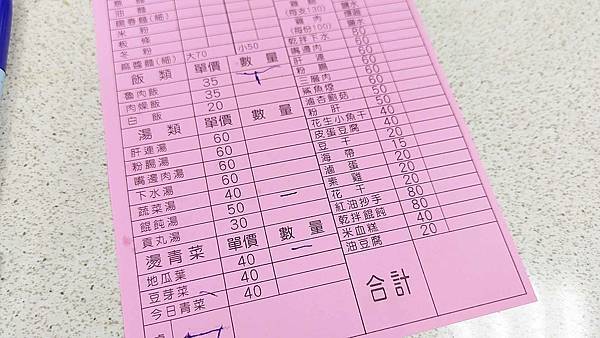 油麵
粄條
冬粉
麻醬麵(細) 大70 小50
飯類 單價 數量
魯肉飯 35
肉燥飯 35
白飯 20
湯類 單價 數量
肝連湯 60
粉腸湯 60
嘴邊肉湯 60
下水湯 60
蔬菜湯 40
餛飩湯 50
貢丸湯 30
燙青菜 單價 數量
地瓜葉 40
豆芽菜 40
今日青菜 40
(每支130)
雞肉
(每份100) 鹽水
乾拌下水 80
嘴邊肉 60
肝連 60
粉腸 60
三層肉 50
鯊魚煙 50
滷杏鮑菇 50
粉肝 50
花生小魚干 40
皮蛋豆腐 40
豆干 20
海帶 15
滷蛋 20
素雞 20
花干 40
紅油抄手 80
乾拌餛飩 80
米血糕 40
油豆腐 20
合計